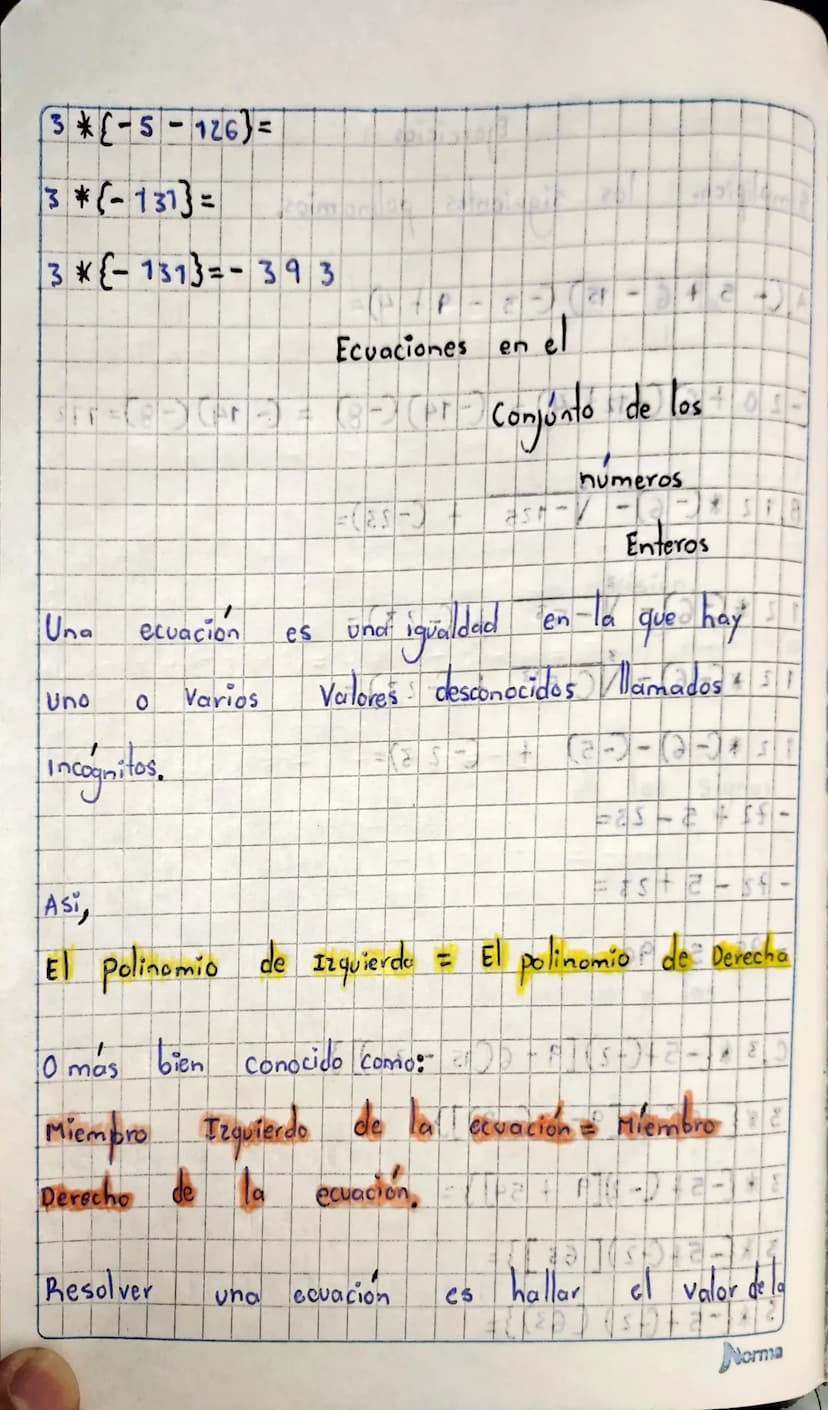 3 *{-5 - 126}=
3 *{- 131}=
3 *{- 131}=- 393
Ecuaciones en el
Conjúnto de los
números
Enteros
Una ecuación es una igualdad en la que hay
uno o varios valores desconocidos llamados
incógnitos.
Así,
El polinomio de Izquierda = El polinomio de Derecha
O más bien conocido como:
Miembro Izquierdo de la ecuación = Miembro
Derecho de la ecuación.
Resolver una ecuación es hallar el valor de la
Norma